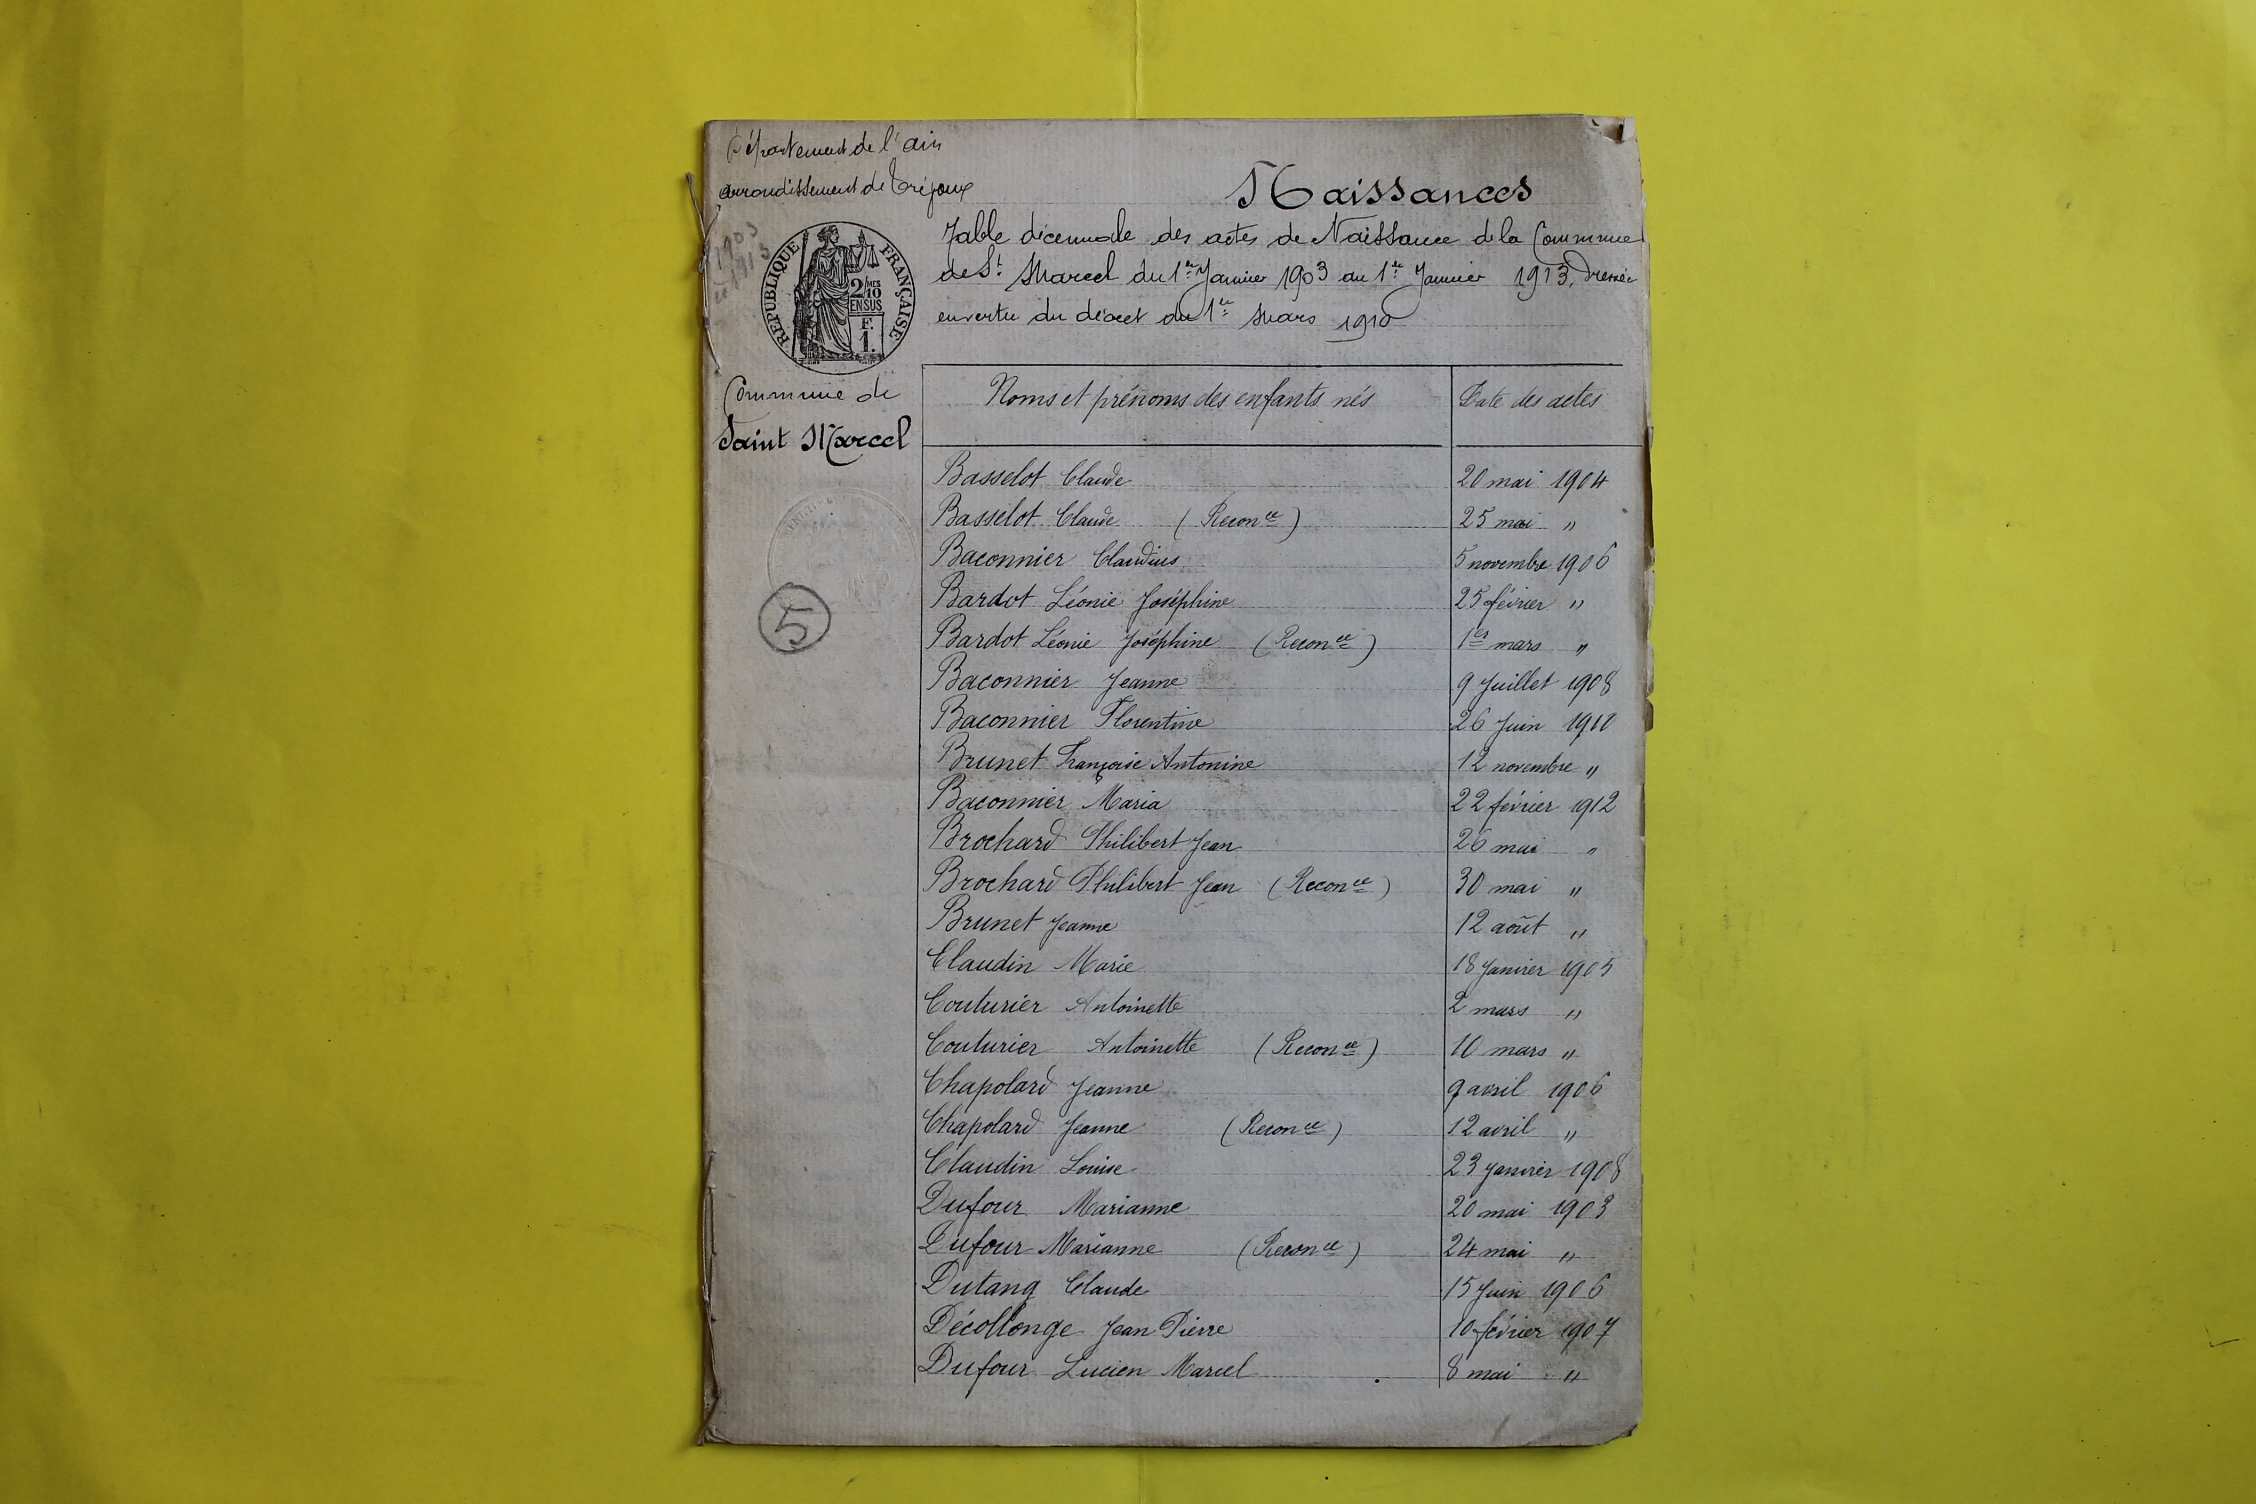 Département de l'ain
arrondissement de Trévoux
1903
à 1913
Naissances
Table décennale des actes de Naissance de la Commune
de St Marcel du 1er Janvier 1903 au 1er Janvier 1913, Dressée
en vertu du décret du 1er Mars 1910
RÉPUBLIQUE FRANÇAISE
2/10 MES
EN SUS
F.
1.
Commune de
Saint Marcel
5
Noms et prénoms des enfants nés Date des actes
Basselot Claude 20 mai 1904
Basselot Claude (Reconce) 25 mai "
Baconnier Claudius 5 novembre 1906
Bardot Léonie Joséphine 25 février "
Bardot Léonie Joséphine (Reconce) 1er mars "
Baconnier Jeanne 9 Juillet 1908
Baconnier Florentine 26 Juin 1910
Brunet Françoise Antonine 12 novembre "
Baconnier Maria 22 février 1912
Brochard Philibert Jean 26 mai "
Brochard Philibert Jean (Reconce) 30 mai "
Brunet Jeanne 12 août "
Claudin Marie 18 Janvier 1905
Couturier Antoinette 2 mars "
Couturier Antoinette (Reconce) 10 mars "
Chapolard Jeanne 9 avril 1906
Chapolard Jeanne (Reconce) 12 avril "
Claudin Louise 23 Janvier 1908
Dufour Marianne 20 mai 1903
Dufour Marianne (Reconce) 24 mai "
Dutang Claude 15 Juin 1906
Décollonge Jean Pierre 10 février 1907
Dufour Lucien Marcel 8 mai "